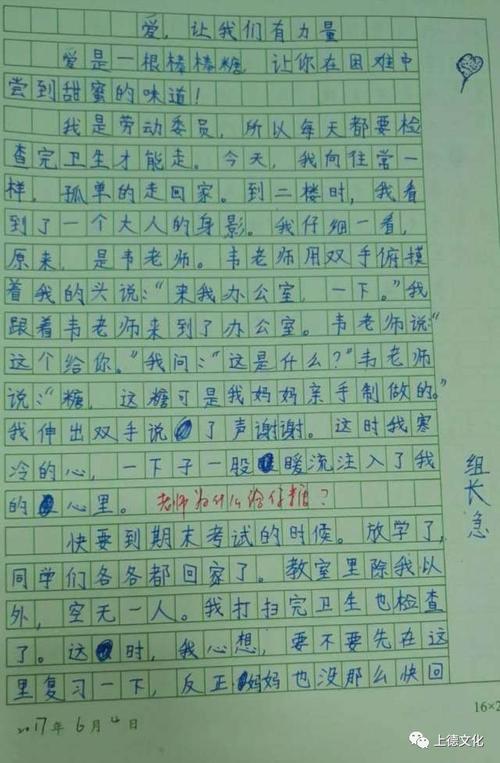 爱,让我们有力量
爱是一根棒棒糖 让你在困难中
尝到甜蜜的味道!
我是劳动委员,所以每天都要检
查完卫生才能走。今天,我向往常一
样,孤单的走回家。到二楼时,我看
到了一个大人的身影。我仔细一看,
原来,是韦老师。韦老师用双手俯摸
着我的头说:“来我办公室,一下。”我
跟着韦老师来到了办公室。韦老师说“
这个给你。”我问:“这是什么?”韦老师
说:“糖,这糖可是我妈妈亲手制做的。”
我伸出双手说了声谢谢。这时我寒
冷的心,一下子一股暖流注入了我
的心里。老师为什么给你糖?
快要到期末考试的时候。放学了,
同学们各各都回家了。教室里除我以
外,空无一人。我打扫完卫生也检查
了。这时,我心想,要不要先在这
里复习一下,反正妈妈也没那么快回
组长急
2017年6月4日
16×2
上德文化